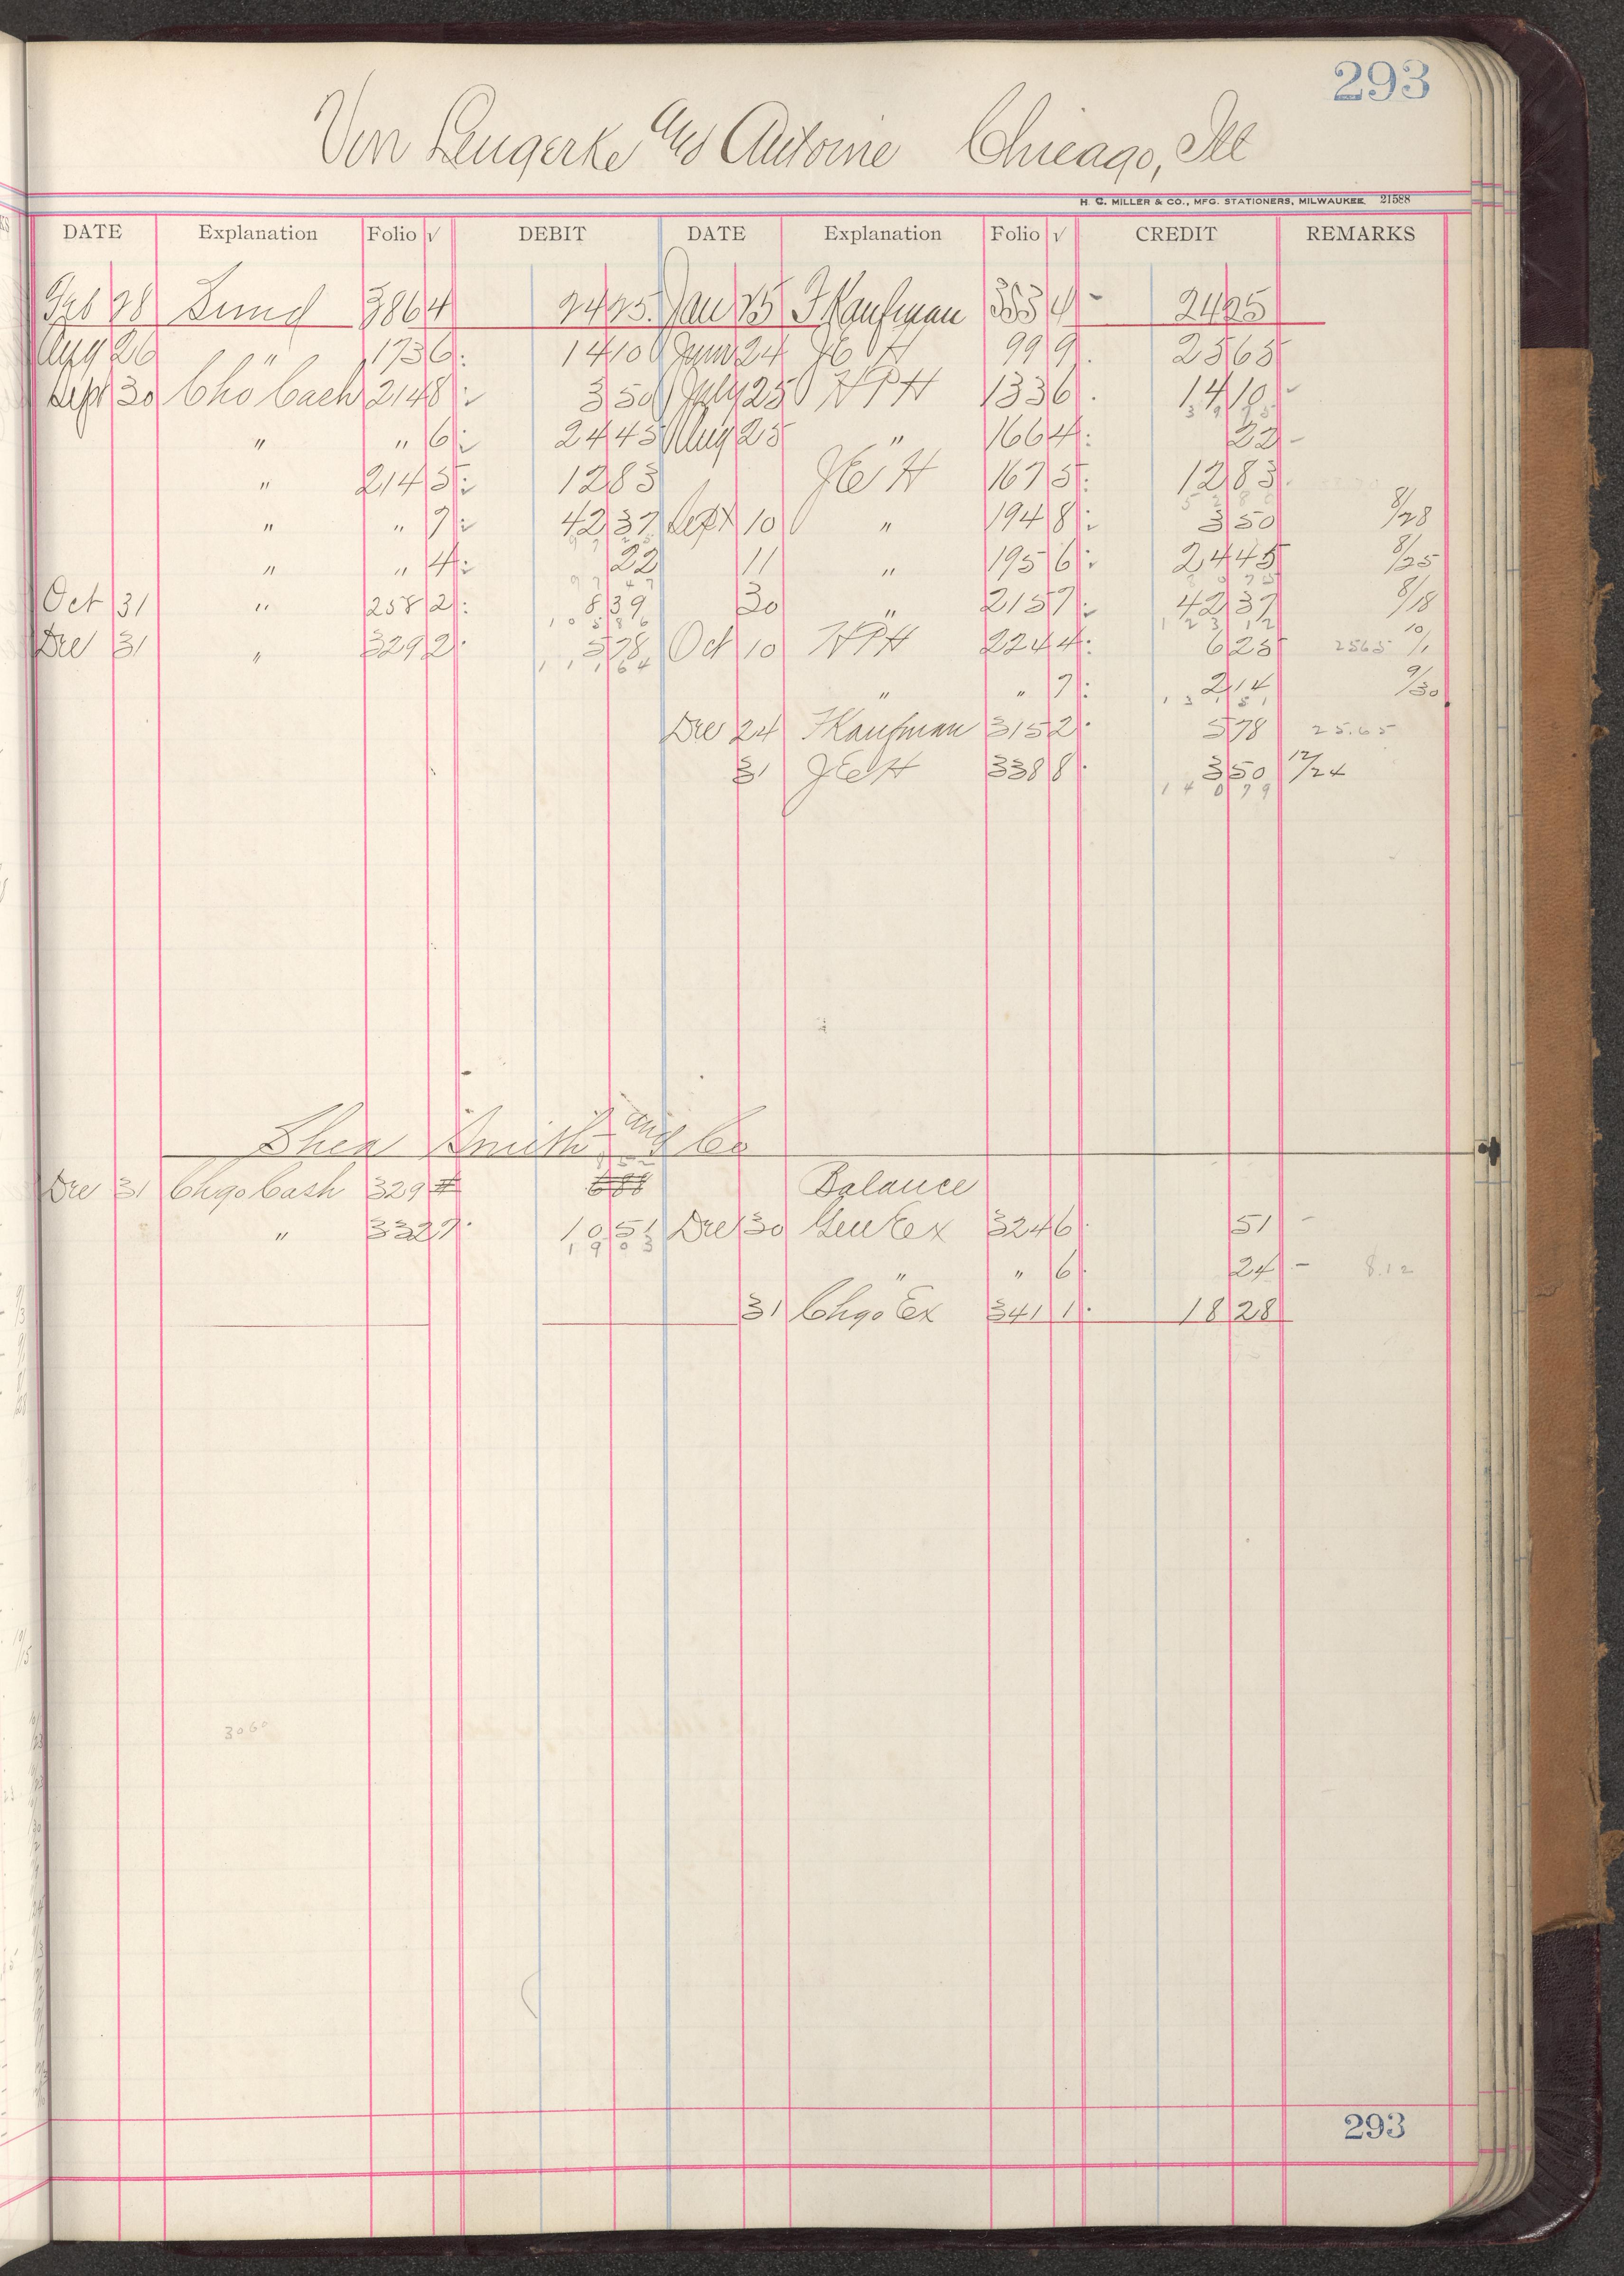 293
Von Lengerke and Antoine Chicago, Ill
H. C. MILLER & CO., MFG. STATIONERS, MILWAUKEE 21588
DATE Explanation Folio √ DEBIT DATE Explanation Folio √ CREDIT REMARKS
Feb 28 Sund 3864 2425 Jan 25 F Kaufman 3534 - 2425
Aug 26 " 1736 1410 June 24 JEH 999 2565
Sept 30 Cho Cash 2148 350 July 25 HPH 1336 1410 -
" " 6 2445 Aug 25 " 1664 22 -
" 2145 1283 JEH 1675 1283
" " 7 4237 Sept 10 " 1948 350 8/28
" " 4 22 11 " 1956 2445 8/25
Oct 31 " 2582 839 30 " 2157 4237 8/18
Dec 31 " 3292 578 Oct 10 HPH 2244 625 2565 10/1
" " 7 214 9/30
Dec 24 F Kaufman 3152 578 25.65
31 JEH 3388 350 12/24
1 4 0 7 9
Shea Smith and Co
Dec 31 Chgo Cash 329 Balance
" 3327 1051 Dec 30 Gen Ex 3246 51 -
1903
" " 6 24 - 8.12
31 Chgo Ex 3411 1828
3060
293